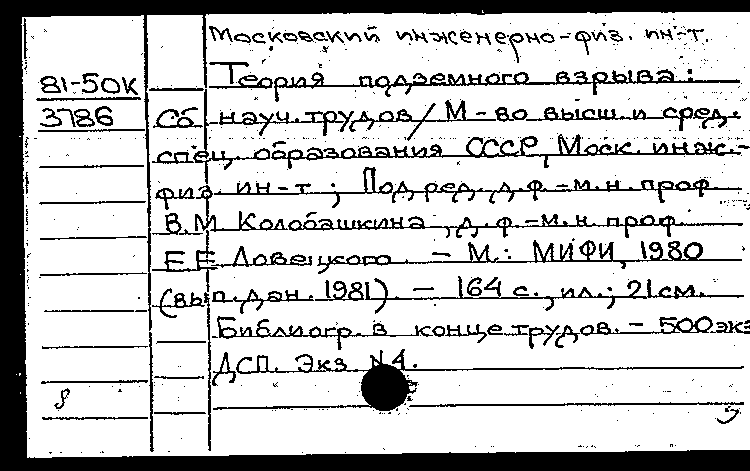 Московский инженерно-физ. ин-т.
81-50К Теория подземного взрыва:
3786 Сб науч. трудов / М-во высш. и сред.
спец. образования СССР, Моск. инж.-
физ. ин-т; Под ред. д.ф.-м.н. проф.
В.М. Колобашкина, д.ф.-м.н. проф.
Е.Е. Ловецкого. - М.: МИФИ, 1980
(вып. дан. 1981). - 164 с., ил.; 21 см.
Библиогр. в конце трудов. - 500 экз
ДСП. Экз. N 4.